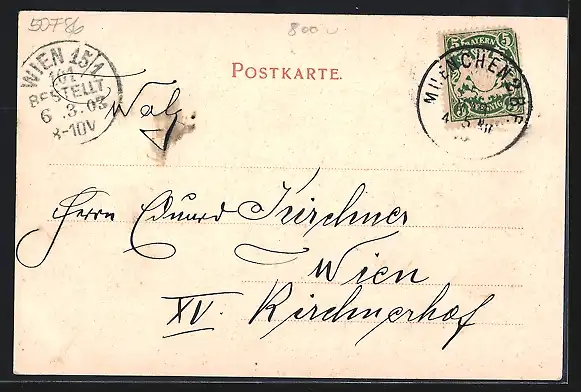 50786
800
WIEN 15/1
BESTELLT
6 .3.03
8-10V
POSTKARTE.
5 BAYERN 5
MUENCHEN 2 B.P.
Herrn Eduard Kirchner
Wien
XV. Kirchnerhof